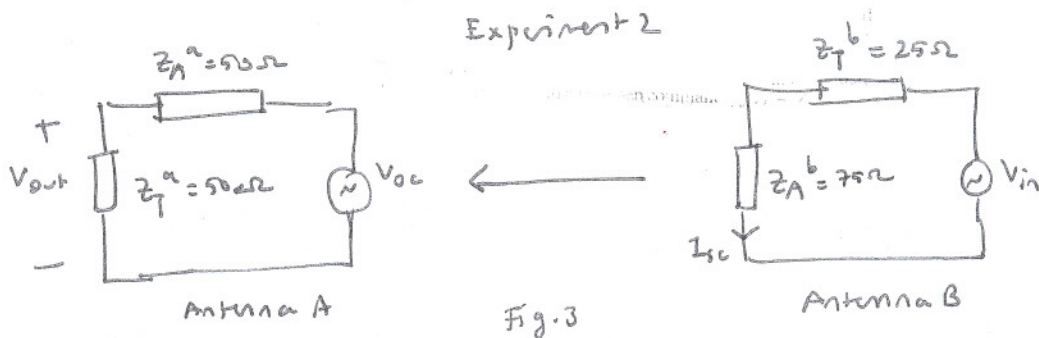 Experiment 2
Z_A^a = 50Ω
Z_T^b = 25Ω
+
V_out
Z_T^a = 50Ω
V_oc
Z_A^b = 75Ω
V_in
I_sc
−
Antenna A
Fig. 3
Antenna B